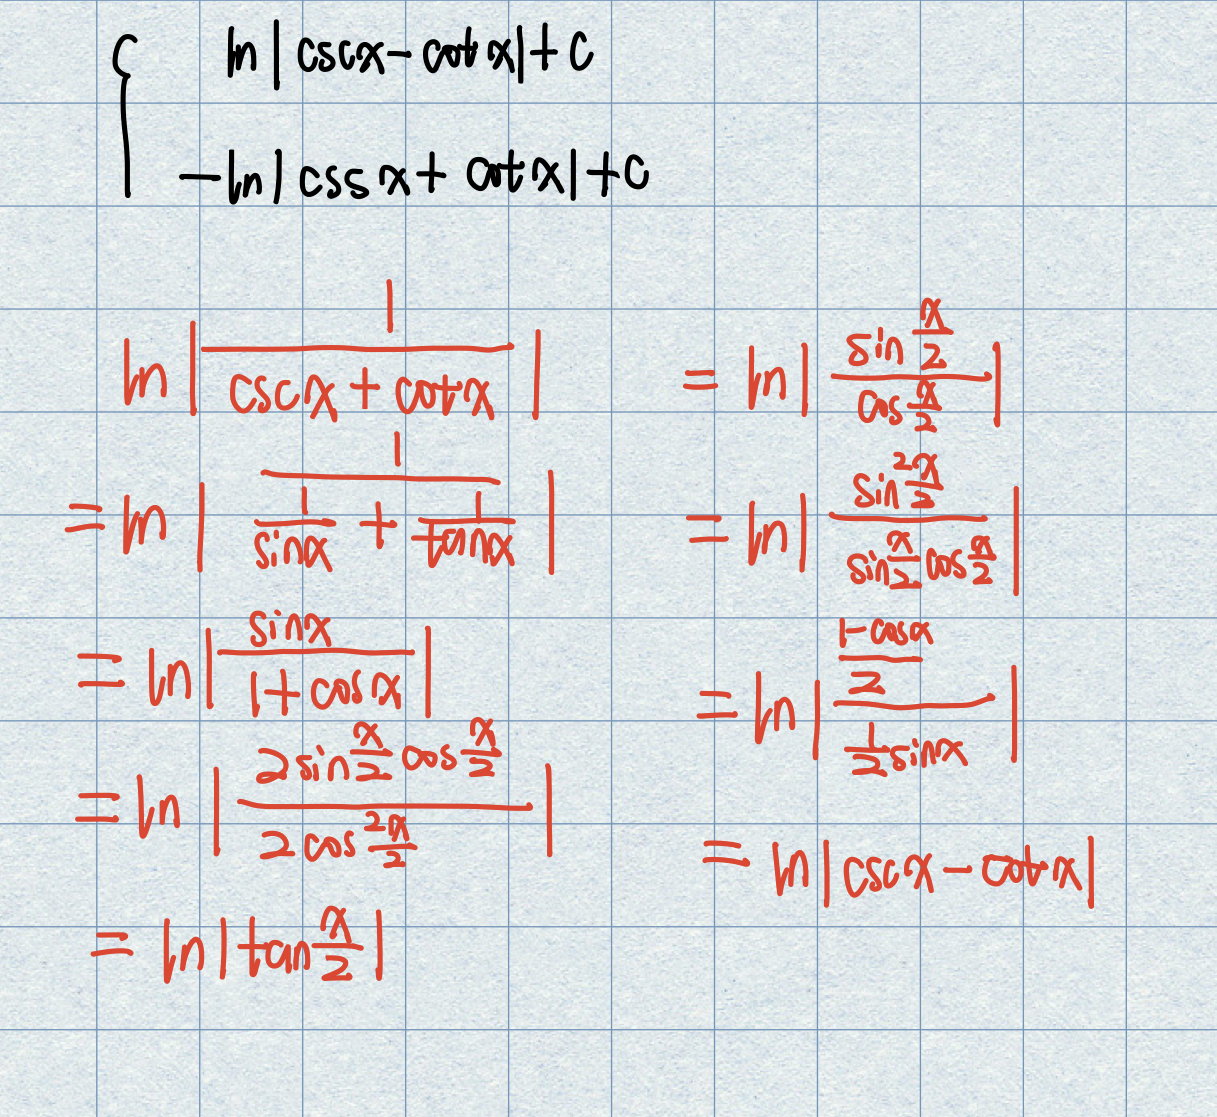 { ln|cscx-cotx|+c
-ln|cssx+cotx|+c
ln|1/(cscx+cotx)|
=ln|1/(1/sinx+1/tanx)|
=ln|sinx/(1+cosx)|
=ln|(2sin x/2 cos x/2)/(2cos² x/2)|
=ln|tan x/2|
=ln|(sin x/2)/(cos x/2)|
=ln|(sin² x/2)/(sin x/2 cos x/2)|
=ln|((1-cosx)/2)/(1/2 sinx)|
=ln|cscx-cotx|